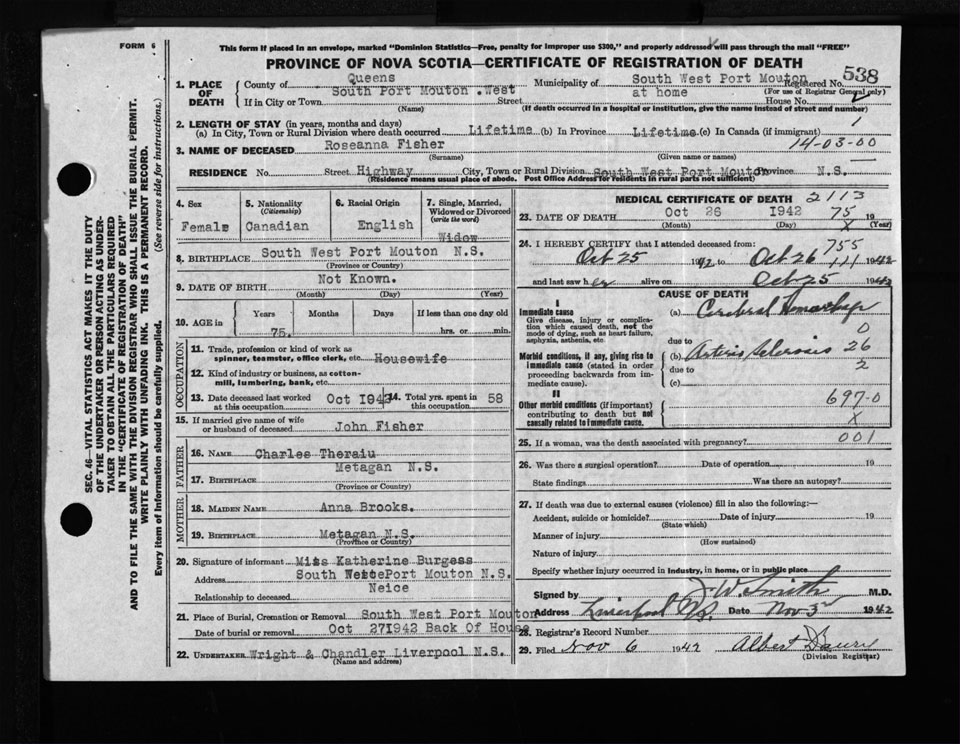 FORM 6
This form if placed in an envelope, marked "Dominion Statistics—Free, penalty for improper use $300," and properly addressed will pass through the mail "FREE"
PROVINCE OF NOVA SCOTIA—CERTIFICATE OF REGISTRATION OF DEATH
538
1. PLACE OF DEATH
County of Queens Municipality of South West Port Mouton Registered No.
South Port Mouton .West at home (For use of Registrar General only)
If in City or Town Street House No.
(Name) (If death occurred in a hospital or institution, give the name instead of street and number)
2. LENGTH OF STAY (in years, months and days) 1
(a) In City, Town or Rural Division where death occurred Lifetime (b) In Province Lifetime (c) In Canada (if immigrant)
3. NAME OF DECEASED Roseanna Fisher 14-03-00
(Surname) (Given name or names)
RESIDENCE No. Street Highway City, Town or Rural Division South West Port Mouton Province N.S.
(Residence means usual place of abode. Post Office Address for residents in rural parts not sufficient)
4. Sex
Female
5. Nationality
(Citizenship)
Canadian
6. Racial Origin
English
7. Single, Married, Widowed or Divorced
(write the word)
Widow
8. BIRTHPLACE South West Port Mouton N.S.
(Province or Country)
9. DATE OF BIRTH Not Known.
(Month) (Day) (Year)
10. AGE in Years Months Days If less than one day old
75. hrs. or min.
OCCUPATION
11. Trade, profession or kind of work as spinner, teamster, office clerk, etc. Housewife
12. Kind of industry or business, as cotton-mill, lumbering, bank, etc.
13. Date deceased last worked at this occupation Oct 1942
14. Total yrs. spent in this occupation 58
15. If married give name of wife or husband of deceased John Fisher
FATHER
16. NAME Charles Theraiu
Metagan N.S.
17. BIRTHPLACE
(Province or Country)
MOTHER
18. MAIDEN NAME Anna Brooks.
19. BIRTHPLACE Metagan N.S.
(Province or Country)
20. Signature of informant Miss Katherine Burgess
Address South West Port Mouton N.S.
Relationship to deceased Neice
21. Place of Burial, Cremation or Removal South West Port Mouton
Date of burial or removal Oct 27 1942 Back Of House
22. UNDERTAKER Wright & Chandler Liverpool N.S.
(Name and address)
MEDICAL CERTIFICATE OF DEATH 2113
23. DATE OF DEATH Oct 26 1942 75 19
(Month) (Day) X (Year)
24. I HEREBY CERTIFY that I attended deceased from: 755
Oct 25 1942 to Oct 26 1942
and last saw her alive on Oct 25 1942
CAUSE OF DEATH
I
Immediate cause
Give disease, injury or complication which caused death, not the mode of dying, such as heart failure, asphyxia, asthenia, etc
(a) Cerebral Hemorrhage
0
due to
Morbid conditions, if any, giving rise to immediate cause (stated in order proceeding backwards from immediate cause).
(b) Arterio Sclerosis 26
due to 2
(c)
II
Other morbid conditions (if important) contributing to death but not causally related to immediate cause.
697-0
X
25. If a woman, was the death associated with pregnancy? 001
26. Was there a surgical operation? Date of operation 19
State findings Was there an autopsy?
27. If death was due to external causes (violence) fill in also the following:—
Accident, suicide or homicide? Date of injury 19
(State which)
Manner of injury
(How sustained)
Nature of injury
Specify whether injury occurred in industry, in home, or in public place
Signed by J W Smith M.D.
Address Liverpool N.S. Date Nov 3 1942
28. Registrar's Record Number
29. Filed Nov 6 1942 Albert
(Division Registrar)
SEC. 46—VITAL STATISTICS ACT MAKES IT THE DUTY
OF THE UNDERTAKER OR PERSON ACTING AS UNDERTAKER
TO OBTAIN ALL THE PARTICULARS REQUIRED
IN THE "CERTIFICATE OF REGISTRATION OF DEATH"
AND TO FILE THE SAME WITH THE DIVISION REGISTRAR WHO SHALL ISSUE THE BURIAL PERMIT.
WRITE PLAINLY WITH UNFADING INK. THIS IS A PERMANENT RECORD.
Every item of Information should be carefully supplied. (See reverse side for instructions.)